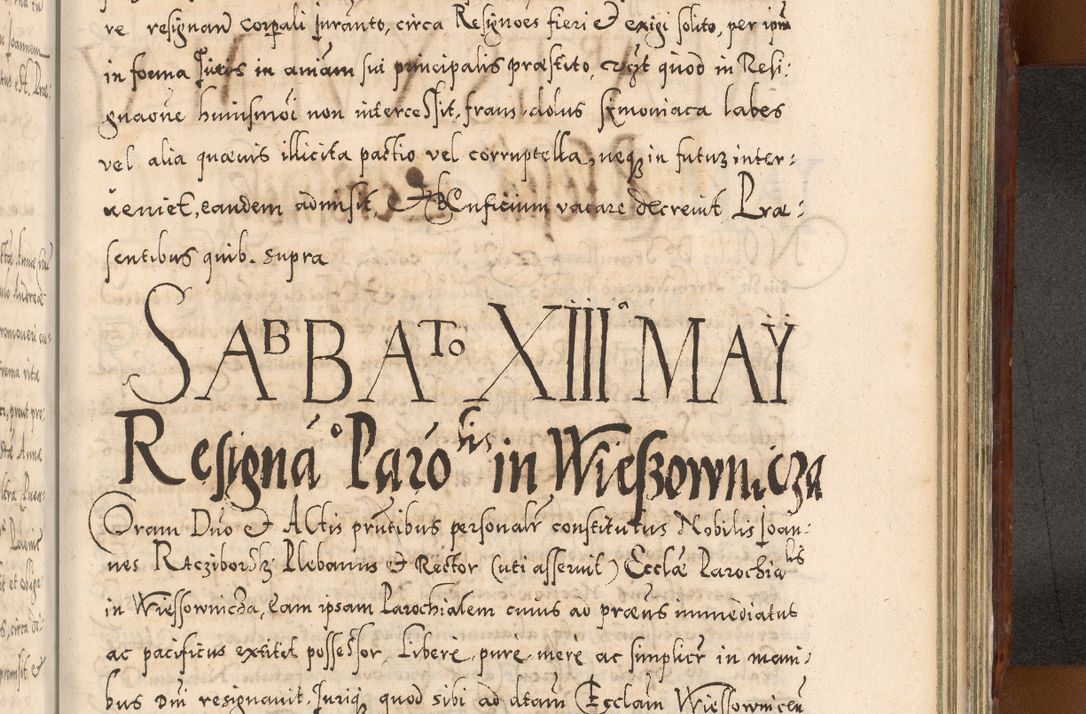 re resignand corpali Juranto, circa Resignões fieri & exigi solito, per ipm
in forma Juris in animam sui principalis præstito, quod in Resi:
gnaone huiusmõi non intercessit, fraus, dolus symoniaca labes
vel alia quævis illicita pactio vel corruptella, neq3 in futur inter:
veniet, eandem admisit, & Beneficium vacare decrevit Præ:
sentibus quib. supra
SABBATo XIIIº MAY
Resignaº Parolis in Wieszownicza
Coram Dño & Actis pñtibus personalr constitutus Nobilis Joan:
nes Racziborski Plebanus & Rector (uti asseruit) Ecclæ Parochialis
in Wiessownicza, Eam ipsam Parochialem cuius ad præns immediatus
ac pacificus extitit possessor, Libere, pure, mere ac simplicr in mani:
bus Dñi resignavit, Juriq3 quod sibi ad dtam Ecclam Wiessownicen